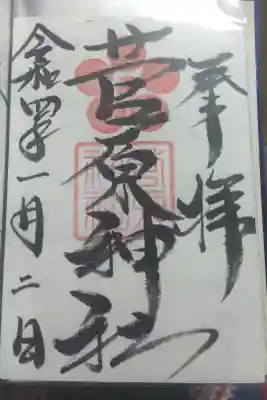 奉拝
菅原神社
令和四年一月二日